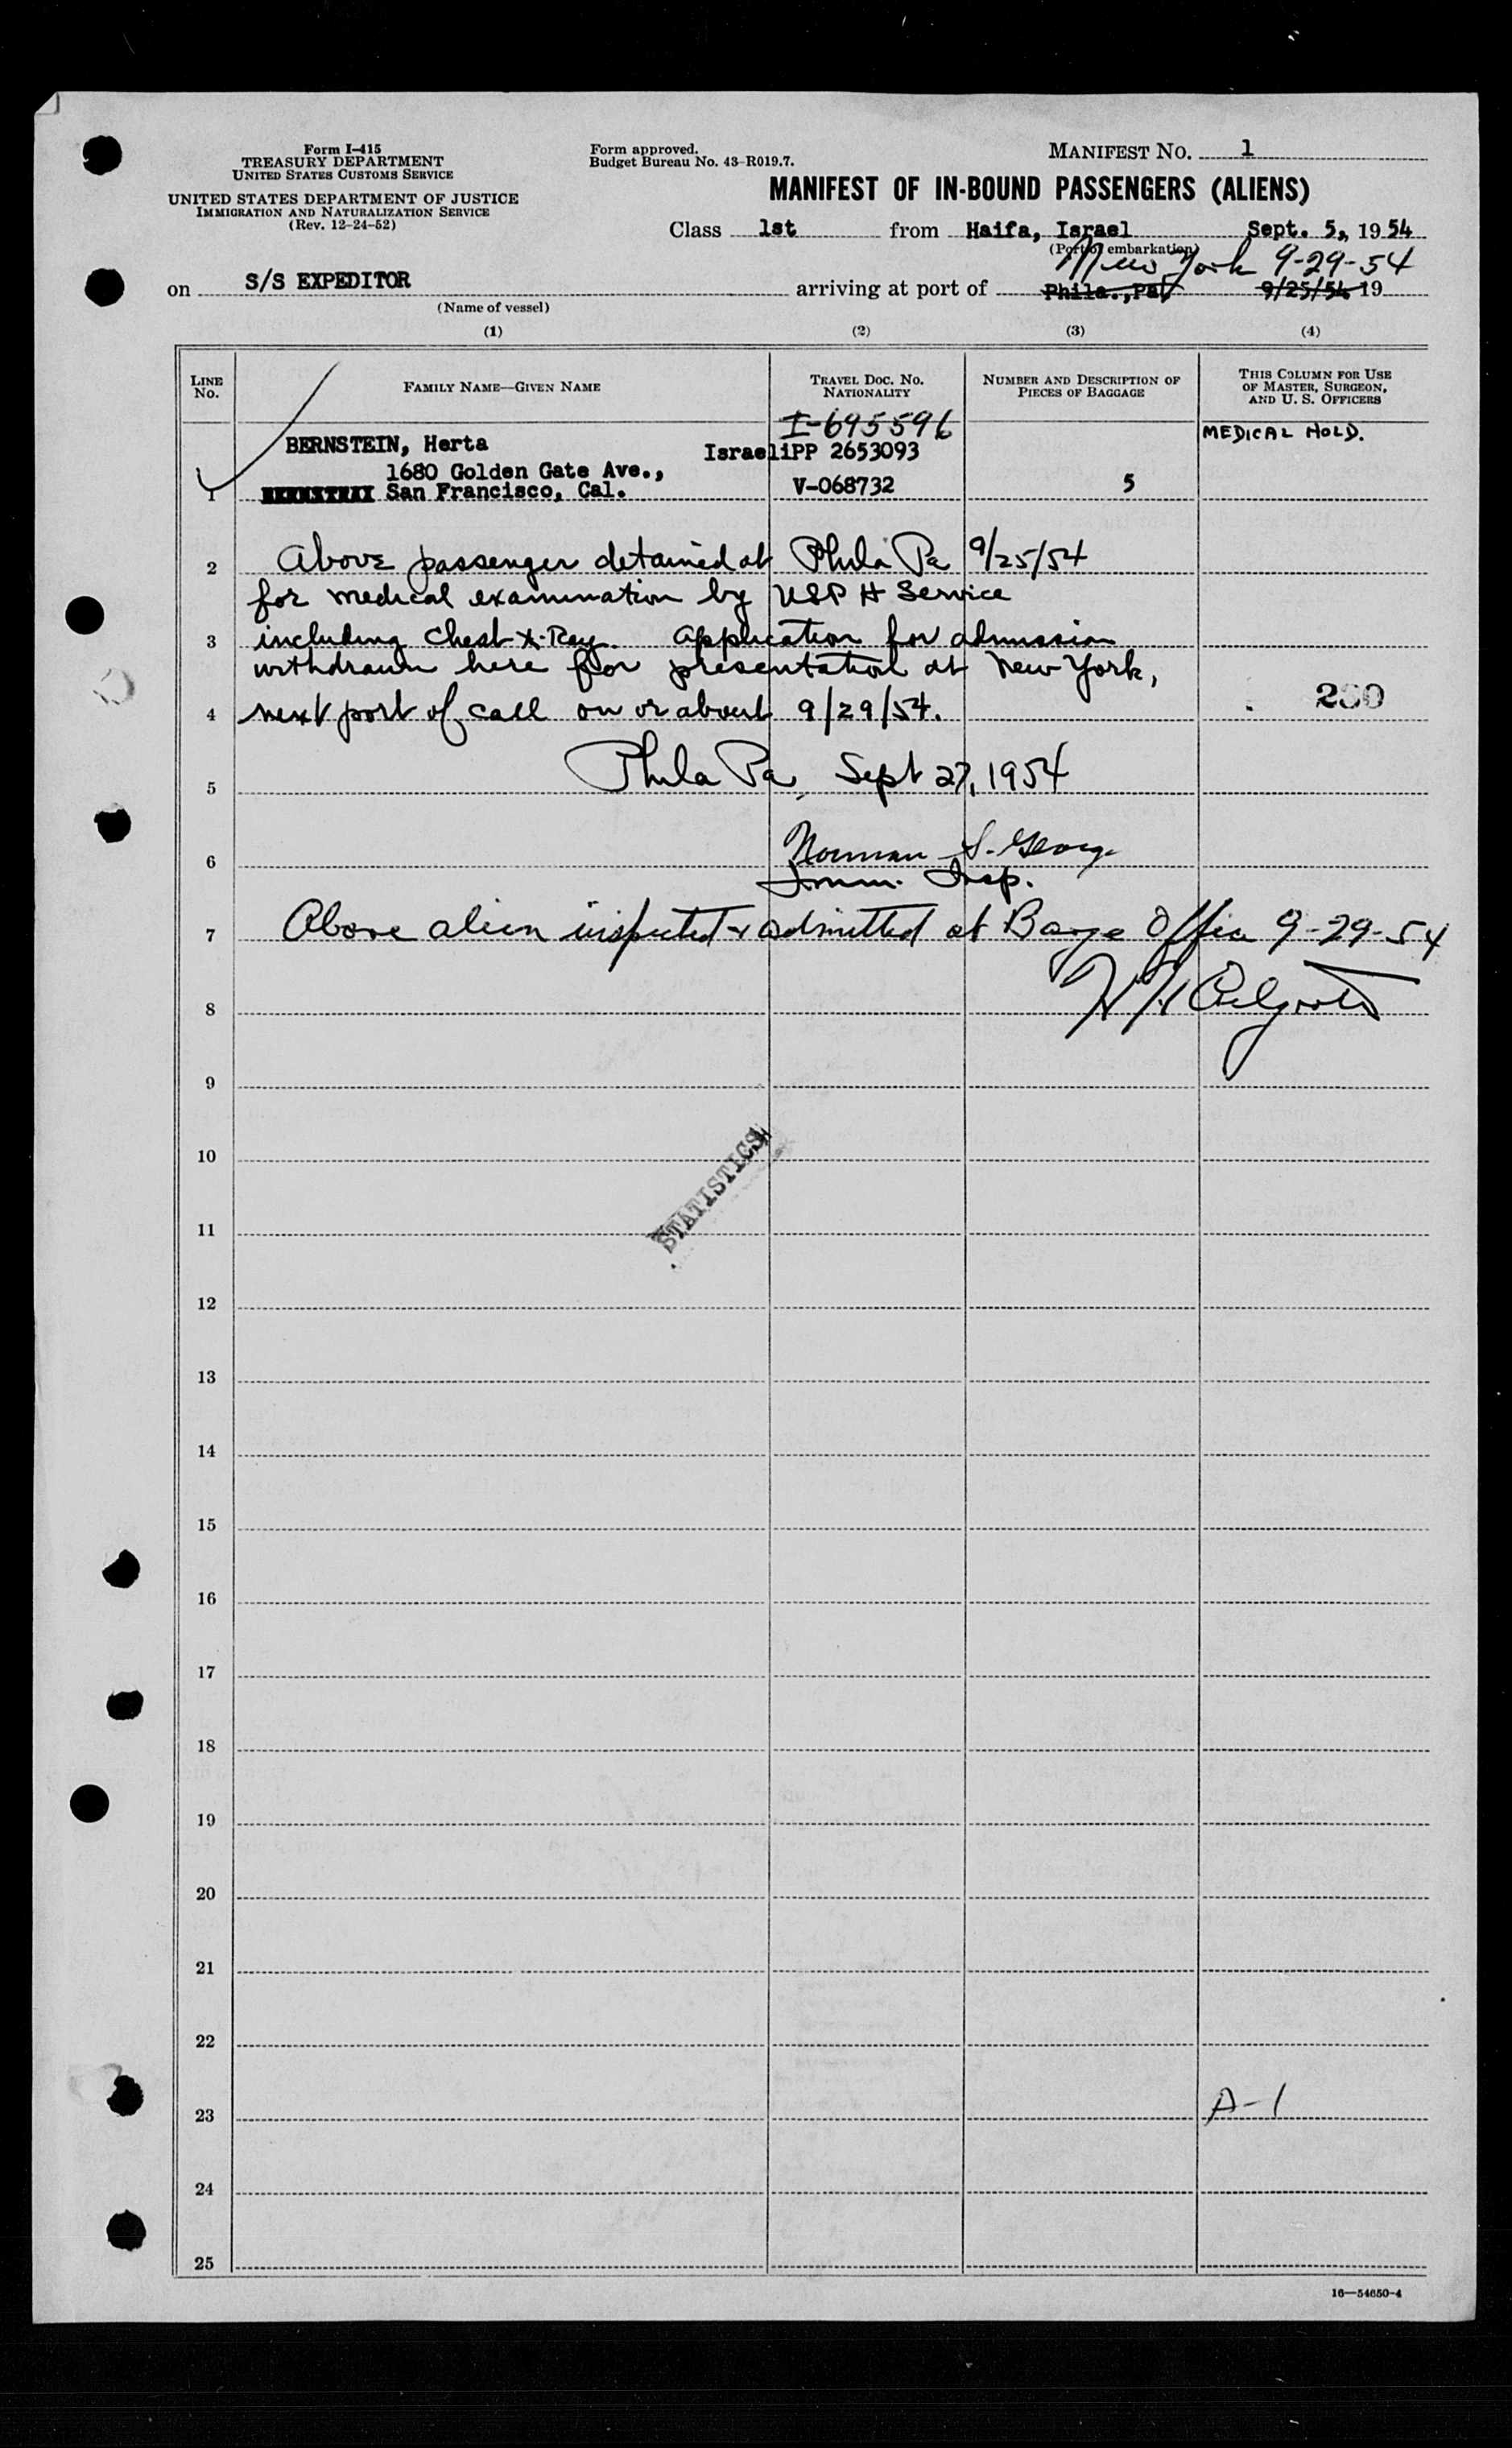 Form I-415
TREASURY DEPARTMENT
UNITED STATES CUSTOMS SERVICE
UNITED STATES DEPARTMENT OF JUSTICE
IMMIGRATION AND NATURALIZATION SERVICE
(Rev. 12-24-52)
Form approved.
Budget Bureau No. 43-R019.7.
MANIFEST NO. 1
MANIFEST OF IN-BOUND PASSENGERS (ALIENS)
Class 1st from Haifa, Israel Sept. 5, 1954
(Port of embarkation)
New York 9-29-54
on S/S EXPEDITOR arriving at port of Phila.,Pa. 9/25/54 19
(Name of vessel)
(1) (2) (3) (4)
LINE No. FAMILY NAME—GIVEN NAME TRAVEL DOC. NO. NATIONALITY NUMBER AND DESCRIPTION OF PIECES OF BAGGAGE THIS COLUMN FOR USE OF MASTER, SURGEON, AND U. S. OFFICERS
I-695596
MEDICAL HOLD.
BERNSTEIN, Herta IsraeliPP 2653093
1680 Golden Gate Ave.,
1 San Francisco, Cal. V-068732 5
2 Above passenger detained at Phila Pa 9/25/54
for medical examination by USPH Service
3 including Chest X-Ray. Application for admission
withdrawn here for presentation at New York,
4 next port of call on or about 9/29/54.
Phila Pa, Sept 27, 1954
5
Norman S. George
6
Imm. Insp.
7 Above alien inspected & admitted at Barge Office 9-29-54
8
9
10
STATISTICS
11
12
13
14
15
16
17
18
19
20
21
22
23 A-1
24
25
16—54650-4